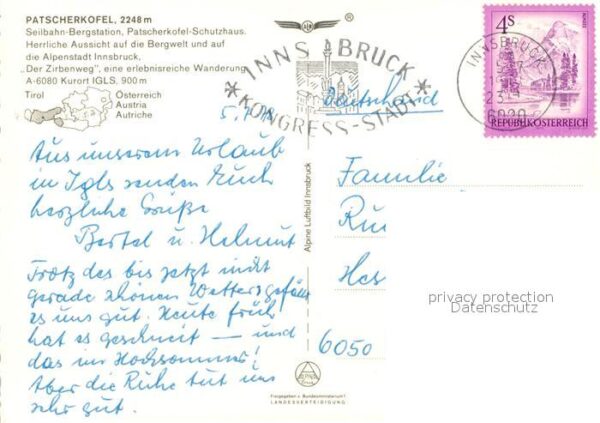 PATSCHERKOFEL, 2248 m
Seilbahn-Bergstation, Patscherkofel-Schutzhaus.
Herrliche Aussicht auf die Bergwelt und auf
die Alpenstadt Innsbruck,
„Der Zirbenweg", eine erlebnisreiche Wanderung
A-6080 Kurort IGLS, 900 m
Tirol
Österreich
Austria
Autriche
INNSBRUCK
KONGRESS-STADT
4S
INNSBRUCK
6020
REPUBLIK ÖSTERREICH
Deutschland
Aus unserem Urlaub
in Igls senden Euch
herzliche Grüße
Bertel u. Helmut
Trotz des bis jetzt nicht
gerade schönen Wetters gefällt
es uns gut. Heute früh
hat es geschneit — und
das im Hochsommer!
Aber die Ruhe tut uns
sehr gut.
Alpine Luftbild Innsbruck
Familie
Hes
6050
privacy protection
Datenschutz
Freigegeben v. Bundesministerium f.
LANDESVERTEIDIGUNG